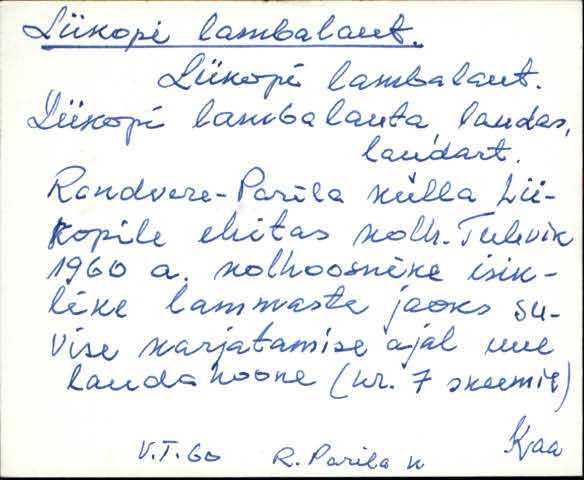 Liikopi lambalaut.
Liikopi lambalaut.
Liikopi lambalauta, laudas,
laudart.
Randvere-Parila külla Lii-
kopile ehitas kolh. Tulevik
1960 a. kolhoosnike isik-
like lammaste jaoks su-
vise karjatamise ajal uue
lauda hoone (nr. 7 skeemil)
V.T.60 R. Parila k Kaa